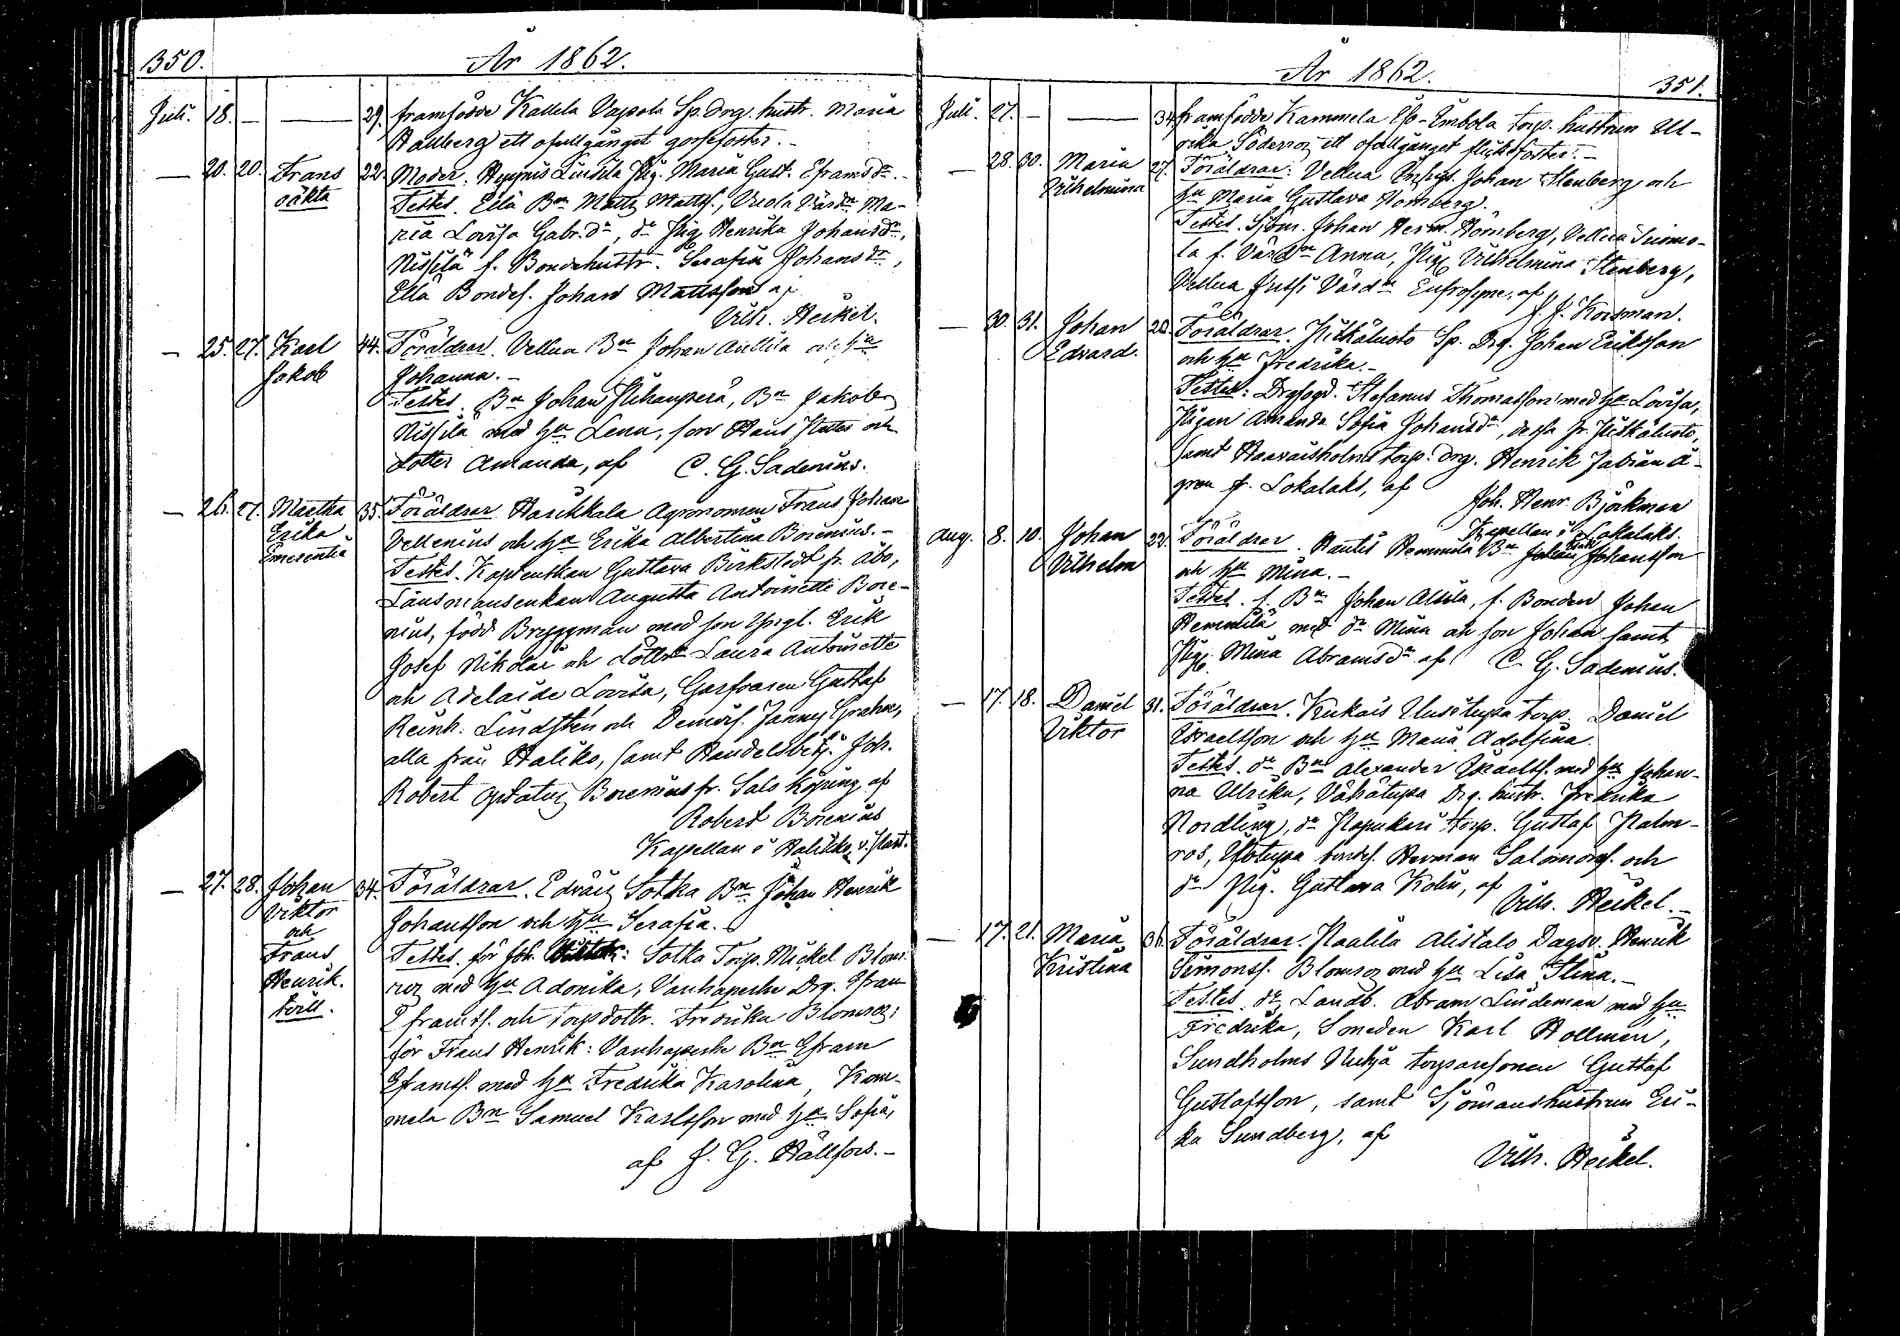 350.
År 1862.
Juli. 18. — — 29. framfödde Kallela Sp. Drg. hustr. Maria
Hallberg ett ofullgånget gossefoster. —
— 20. 20. Frans 22. Moder. Lintila Pig. Maria Gust. Eframsdr. —
oäkta Testes. Ellä Bn Matts Mattss., Värdn Ma-
ria Lovisa Gabr.dr, dr Pig. Henrika Johansdr,
Nissilä f. Bondehustr. Serafia Johansdr,
Ellä Bondes. Johan Mattsson af
Vilh. Heikel.
— 25. 27. Karl 44. Föräldrar. Vellua Bn Johan Anttila och hu
Jakob Johanna. —
Testes. Bn Johan Bn Jakob
Nissilä med hu Lena, son Hans och
dotter Amanda, af C. G. Sadenius.
— 26. 27. Martha 35. Föräldrar Agronomen Frans Johan
Erika Vellenius och hu Erika Albertina Borenius. —
Emerentia Testes. Gustava Birkstedt fr. Åbo,
Länsmansenkan Augusta Antoinette Bore-
nius, född Bryggman med son Yngl. Erik
Josef Nikolai och döttr. Laura Antoinette
och Adelaide Lovisa, Garfvaren Gustaf
Reinh. Lindstén och Demois. Fanny Grahn,
alla från Haliko, samt Handelsbetj. Joh.
Robert Borenius fr. Salo köping af
Robert Borenius
Kapellan i Halikko
— 27. 28. Johan 34. Föräldrar. Edväis Sotka Bn Johan Henrik
Viktor Johansson och hu Serafia.
och Testes för Joh. Viktor: Sotka Torp. Mickel Blom-
Frans roos med hu Adonika, Vanhaperhe Drg. Efram
Henrik. Eframss. och torpdottr. Fredrika Blomroos;
tvill. för Frans Henrik: Vanhaperhe Bn Efram
Eframss. med hu Fredrika Karolina, Kam-
mela Bn Samuel Karlsson med hu Sofia,
af J. G. Hällfors. —
År 1862.
351.
Juli. 27. — — 34. framfödde Kammela torp. hustrun Ul-
rika Söderroos ett ofullgånget flickefoster. —
— 28. 30. Maria 27. Föräldrar: Vellua Johan Stenberg och
Vilhelmina hu Maria Gustava Homberg.
Testes. Sjöm. Johan Herm. Hörnberg, Vellua Suomo-
la f. Värdn Anna, Pig. Vilhelmina Stenberg,
Vellua Värdn Eufrosyne, af
J. J. Korsman.
— 30. 31. Johan 22. Föräldrar. Pitkäluoto Sp. Drg. Johan Eriksson
Edvard. och hu Fredrika. —
Testes: Drgfogd. Stefanus Thomasson med hu Lovisa,
Pigan Amanda Sofia Johansdr, dessa fr. Pitkäluoto,
samt torp. drg. Henrik Fabian Å-
gren fr. Lokalaks, af Joh. Henr. Björkman
Kapellan i Lokalaks.
Aug. 8. 10. Johan 22. Föräldrar. Hautis Hemmilä Bn Johansson
Vilhelm och hu Mina. —
Testes. f. Bn Johan Alsila, f. Bonden Johan
Hemmilä med dr Mina och son Johan samt
Pig. Mina Abramsdr af C. G. Sadenius.
— 17. 18. Daniel 31. Föräldrar. Kukais Uusitupa torp. Daniel
Viktor Israelsson och hu Maria Adolfina.
Testes. dr Bn Alexander Israelss. med hu Johan-
na Ulrika, Vähätupa Drg. hustr. Fredrika
Nordling, dr torp. Gustaf Palm-
ros, Ylötupa bondes. Herman Salomonss. och
dr Pig. Gustava Kolin, af
Vilh. Heikel. —
— 17. 21. Maria 36. Föräldrar. Kaalila Alistalo Dagsv. Henrik
Kristina Simonss. Blomroos med hu Lisa Stina. —
Testes. dr Landb. Abram Lindeman med hu
Fredrika, Smeden Karl Hollmen,
Sundholms torparesonen Gustaf
Gustafsson, samt Sjömanshustrun Eri-
ka Sundberg, af
Vilh. Heikel.